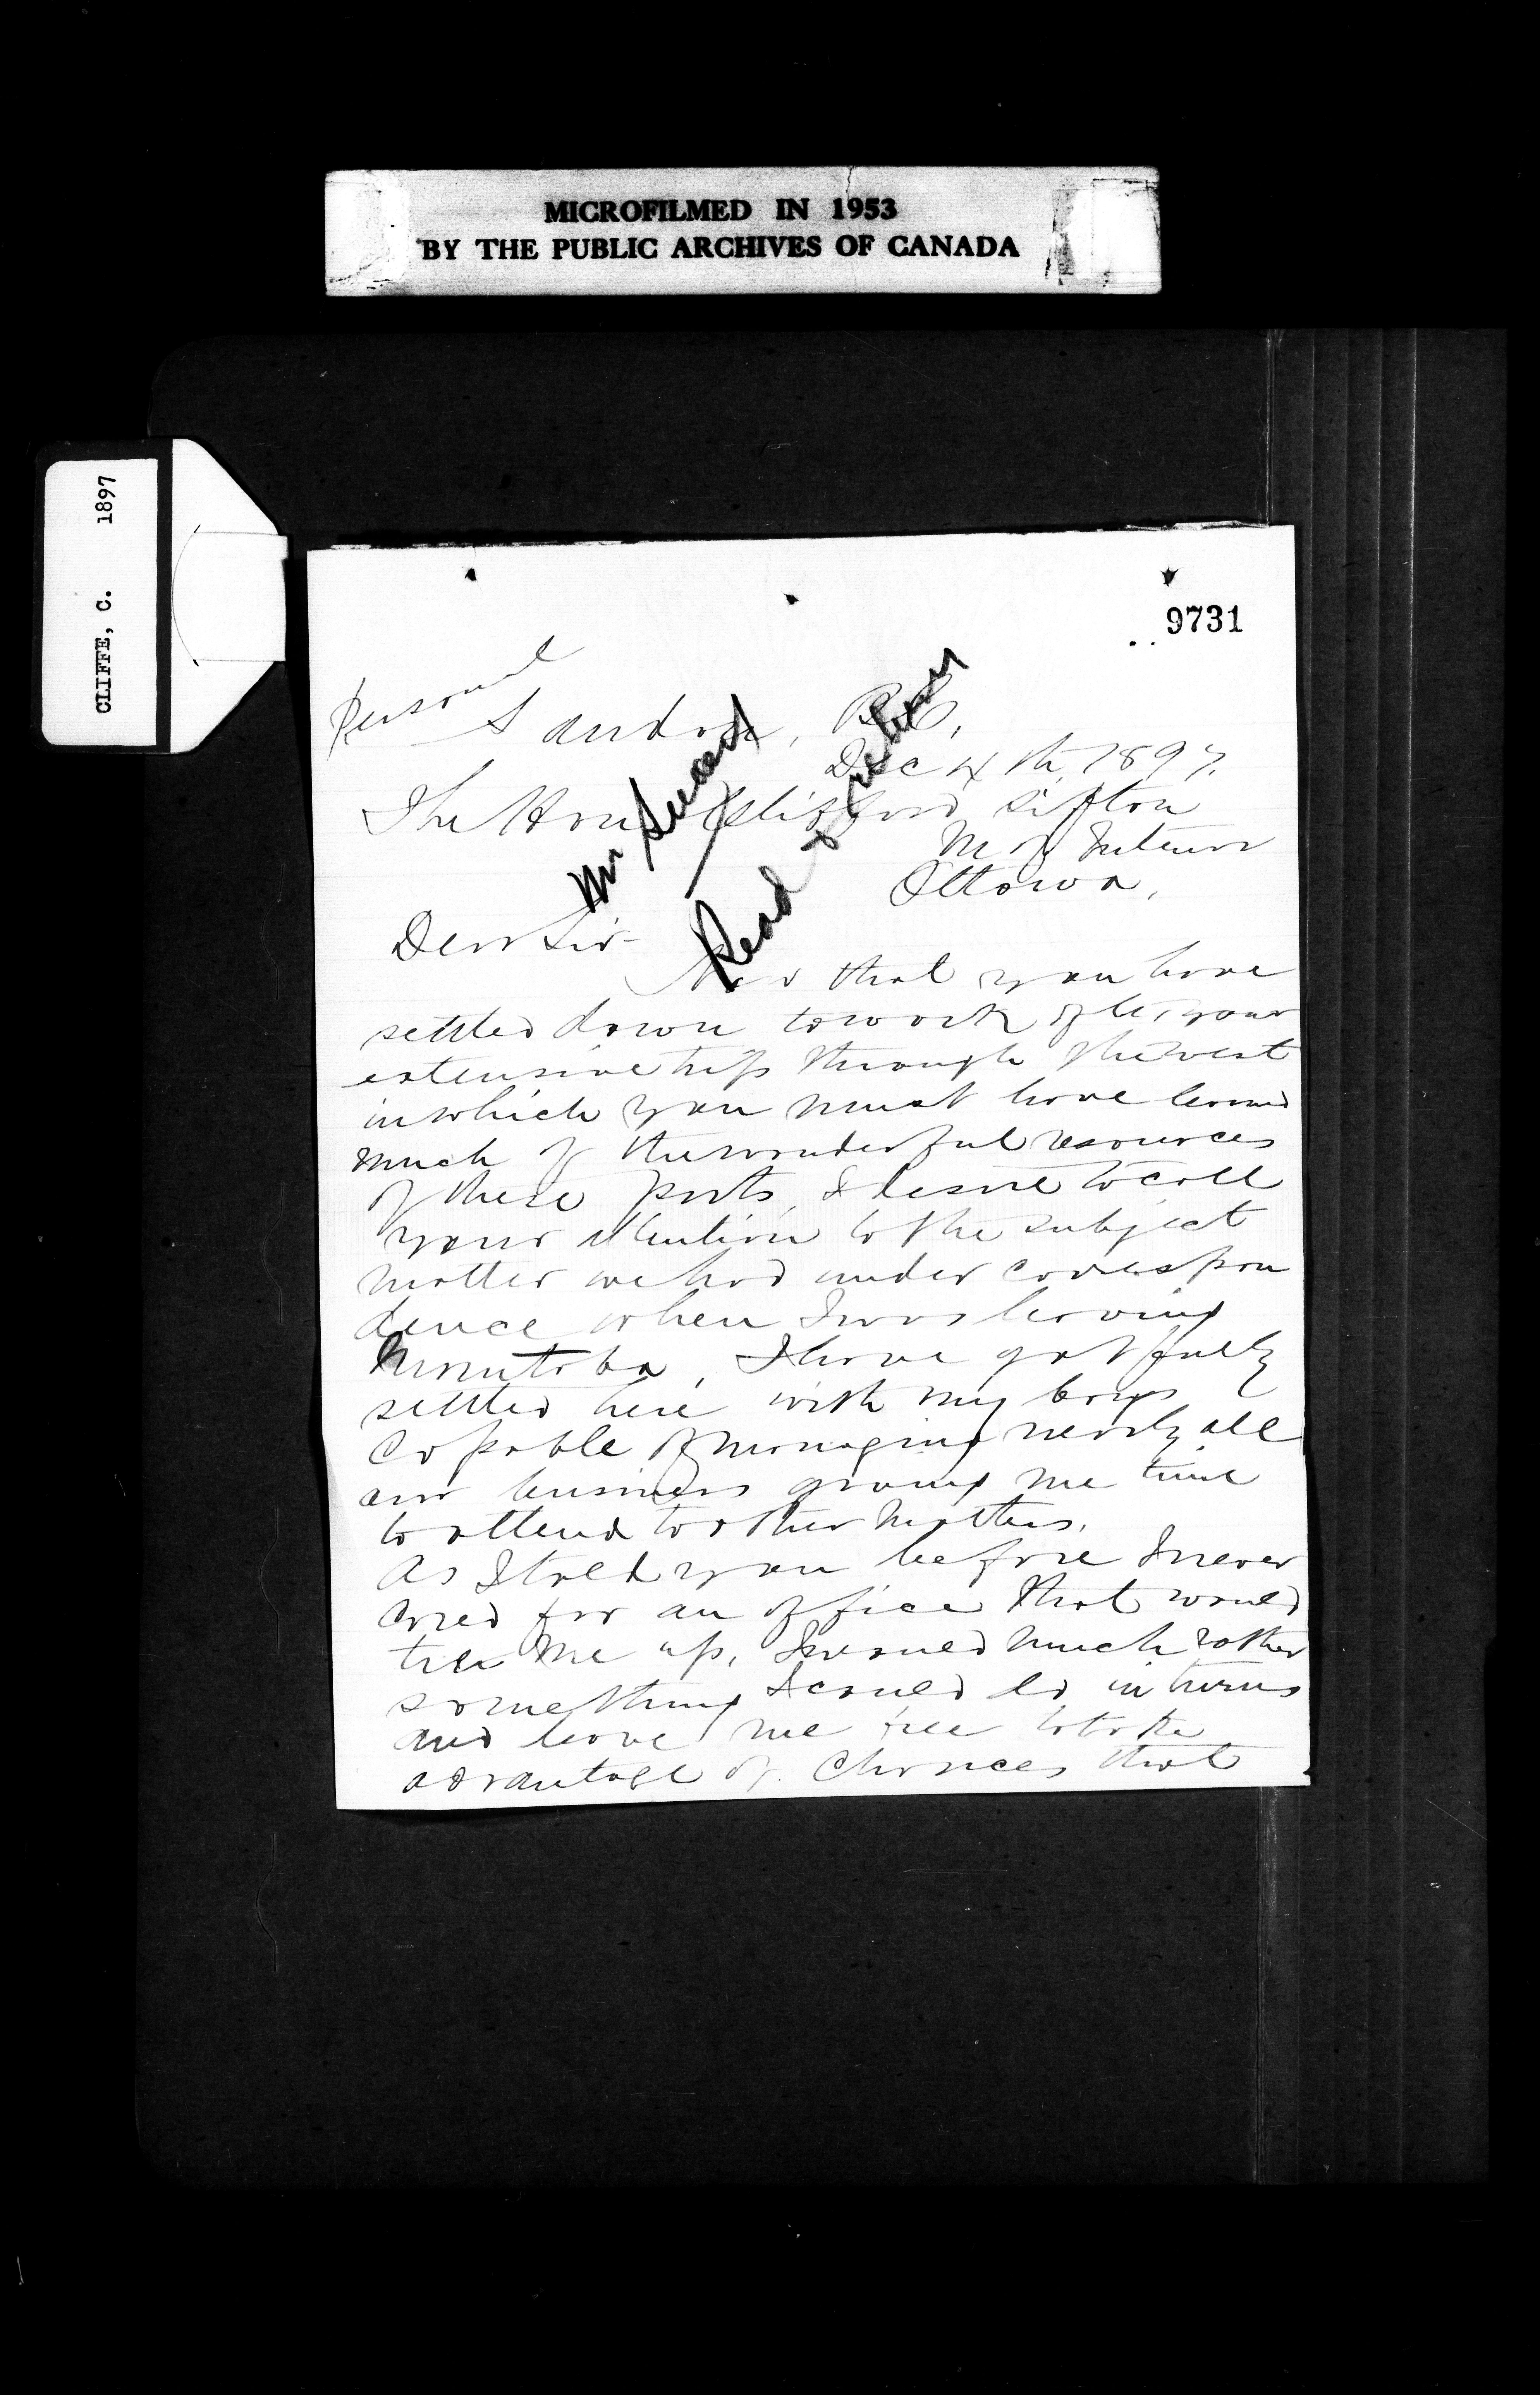 MICROFILMED IN 1953
BY THE PUBLIC ARCHIVES OF CANADA
CLIFFE, C. 1897
9731
Personal
Sandon, B.C,
Dec 4th, 1897.
The Hon Clifford Sifton
M of Interior
Ottowa,
Mr
Read & return
Dear Sir
Now that you have
settled down to work after your
extensive trip through the west
in which you must have learned
much of the wonderful resources
of these parts, I desire to call
your attention to the subject
matter we had under correspon
dence when I was leaving
Manitoba, I have got fully
settled here with my boys
capable of managing nearly all
our business giving me time
to attend to other matters.
As I told you before I never
cared for an office that would
tie me up, I would much rather
something I could do in turns
and leave me free to take
advantage of chances that